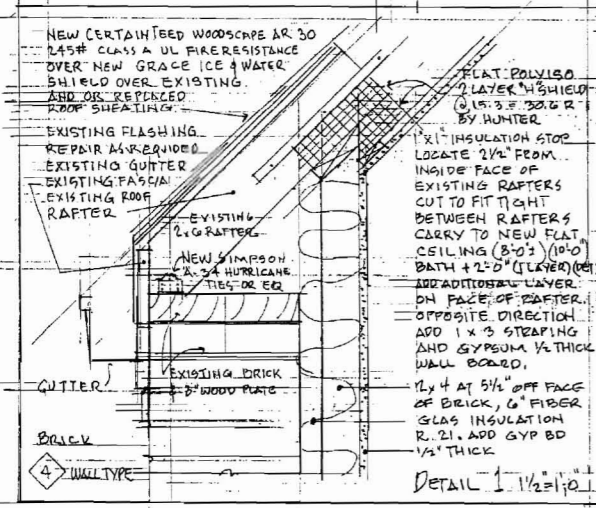 NEW CERTAINTEED WOODSCAPE AR 30
245# CLASS A UL FIRE RESISTANCE
OVER NEW GRACE ICE & WATER
SHIELD OVER EXISTING
AND OR REPLACED
ROOF SHEATING
EXISTING FLASHING
REPAIR AS REQUIDED
EXISTING GUTTER
EXISTING FASCIA
EXISTING ROOF
RAFTER
EXISTING
2x6 RAFTER
NEW SIMPSON
HURRICANE
TIES OR EQ
EXISTING BRICK
WOOD PLATE
GUTTER
BRICK
4 WALL TYPE
FLAT POLYISO
2 LAYER "H" SHIELD
@ 15.3 = 30.6 R
BY HUNTER
1"x1" INSULATION STOP
LOCATE 2 1/2" FROM
INSIDE FACE OF
EXISTING RAFTERS
CUT TO FIT TIGHT
BETWEEN RAFTERS
CARRY TO NEW FLAT
CEILING (8'-0"±) (10'-0"
BATH + 2'-0" (1 LAYER)
ADD ADDITIONAL LAYER
ON FACE OF RAFTER
OPPOSITE DIRECTION
ADD 1 x 3 STRAPING
AND GYPSUM 1/2 THICK
WALL BOARD.
2x4 AT 5 1/2" OFF FACE
OF BRICK, 6" FIBER
GLAS INSULATION
R. 21. ADD GYP BD
1/2" THICK
DETAIL 1 1 1/2"=1'-0"